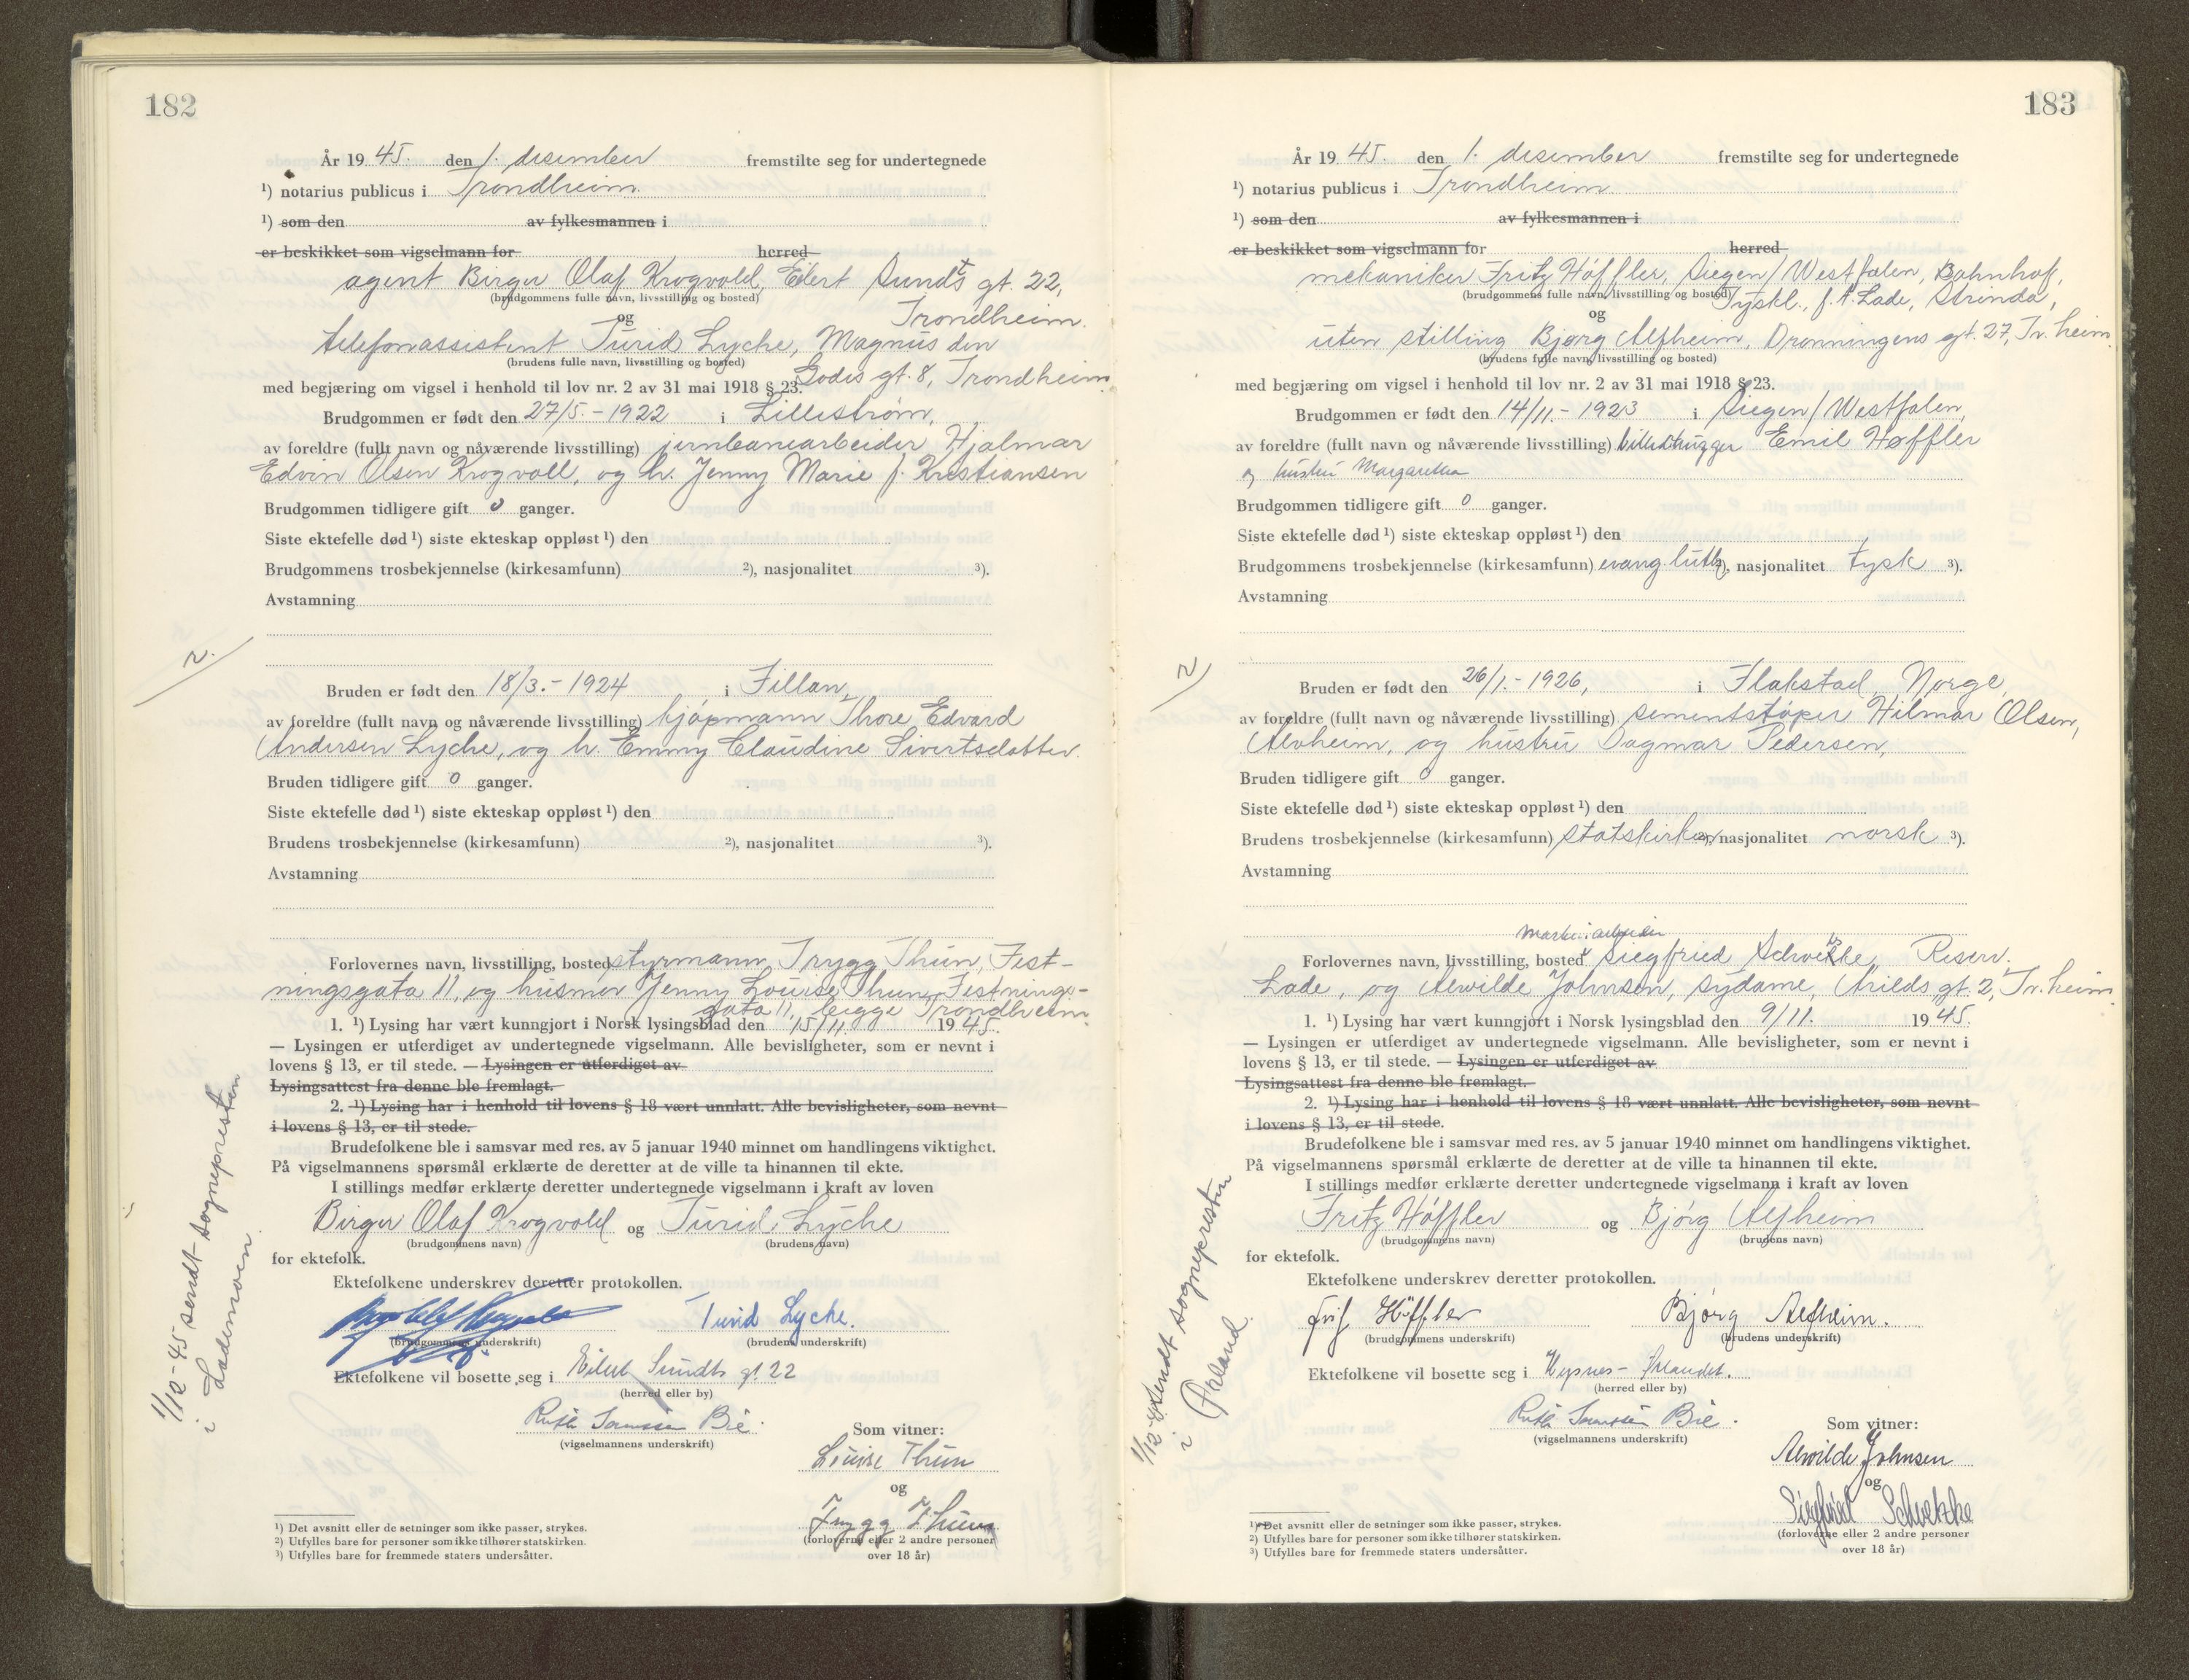 182
År 1945. den 1. desember fremstilte seg for undertegnede
¹) notarius publicus i Trondheim.
¹) som den av fylkesmannen i
er beskikket som vigselmann for herred
agent Birger Olaf Krogvold, Eilert Sundts gt. 22,
(brudgommens fulle navn, livsstilling og bosted)
Trondheim.
og
telefonassistent Turid Lyche, Magnus den
(brudens fulle navn, livsstilling og bosted)
Godes gt. 8, Trondheim,
med begjæring om vigsel i henhold til lov nr. 2 av 31 mai 1918 § 23.
Brudgommen er født den 27/5.-1922 i Lillestrøm,
av foreldre (fullt navn og nåværende livsstilling) jernbanearbeider Hjalmar
Edvin Olsen Krogvoll, og h. Jenny Marie f. Kristiansen
Brudgommen tidligere gift 0 ganger.
Siste ektefelle død ¹) siste ekteskap oppløst ¹) den
Brudgommens trosbekjennelse (kirkesamfunn) ²), nasjonalitet ³).
Avstamning
2.
Bruden er født den 18/3.-1924 i Fillan,
av foreldre (fullt navn og nåværende livsstilling) kjøpmann Thore Edvard
Andersen Lyche, og h. Emmy Claudine Sivertsdatter.
Bruden tidligere gift 0 ganger.
Siste ektefelle død ¹) siste ekteskap oppløst ¹) den
Brudens trosbekjennelse (kirkesamfunn) ²), nasjonalitet ³).
Avstamning
Forlovernes navn, livsstilling, bosted styrmann Trygg Thun, Fest-
ningsgata 11, og husmor Jenny Louise Thun, Festnings-
gata 11, begge Trondheim.
1. ¹) Lysing har vært kunngjort i Norsk lysingsblad den 15/11. 1945.
— Lysingen er utferdiget av undertegnede vigselmann. Alle bevisligheter, som er nevnt i
lovens § 13, er til stede. — Lysingen er utferdiget av
Lysingsattest fra denne ble fremlagt.
2. ¹) Lysing har i henhold til lovens § 18 vært unnlatt. Alle bevisligheter, som nevnt
i lovens § 13, er til stede.
Brudefolkene ble i samsvar med res. av 5 januar 1940 minnet om handlingens viktighet.
På vigselmannens spørsmål erklærte de deretter at de ville ta hinannen til ekte.
I stillings medfør erklærte deretter undertegnede vigselmann i kraft av loven
Birger Olaf Krogvold og Turid Lyche
(brudgommens navn) (brudens navn)
for ektefolk.
Ektefolkene underskrev deretter protokollen.
Turid Lyche.
(brudgommens underskrift) (brudens underskrift)
Ektefolkene vil bosette seg i Eilert Sundts gt 22
(herred eller by)
Ruth Bie.
(vigselmannens underskrift)
Som vitner:
Louise Thun
og
Trygg Thun
(forloverne eller 2 andre personer
over 18 år)
1/12-45 sendt sognepresten
i Lademoen.
¹) Det avsnitt eller de setninger som ikke passer, strykes.
²) Utfylles bare for personer som ikke tilhører statskirken.
³) Utfylles bare for fremmede staters undersåtter.
183
År 1945. den 1. desember fremstilte seg for undertegnede
¹) notarius publicus i Trondheim
¹) som den av fylkesmannen i
er beskikket som vigselmann for herred
mekaniker Fritz Höffler, Siegen/Westfalen, Bahnhof,
(brudgommens fulle navn, livsstilling og bosted)
Tyskl., f.t. Lade, Strinda,
og
uten stilling Bjørg Alfheim, Dronningens gt. 27, Tr.heim.
(brudens fulle navn, livsstilling og bosted)
med begjæring om vigsel i henhold til lov nr. 2 av 31 mai 1918 § 23.
Brudgommen er født den 14/11.-1923 i Siegen/Westfalen,
av foreldre (fullt navn og nåværende livsstilling) Emil Høffler
og hustru Margaretha
Brudgommen tidligere gift 0 ganger.
Siste ektefelle død ¹) siste ekteskap oppløst ¹) den
Brudgommens trosbekjennelse (kirkesamfunn) evang. luth. ²), nasjonalitet tysk ³).
Avstamning
2
Bruden er født den 26/1.-1926, i Flakstad, Norge,
av foreldre (fullt navn og nåværende livsstilling) sementstøper Hilmar Olsen,
Alvheim, og hustru Dagmar Pedersen,
Bruden tidligere gift 0 ganger.
Siste ektefelle død ¹) siste ekteskap oppløst ¹) den
Brudens trosbekjennelse (kirkesamfunn) statskirken ²), nasjonalitet norsk ³).
Avstamning
Forlovernes navn, livsstilling, bosted Siegfried Reserv.
Lade, og Alvilde Johnsen, sydame, Arilds gt. 2, Tr.heim.
1. ¹) Lysing har vært kunngjort i Norsk lysingsblad den 9/11. 1945.
— Lysingen er utferdiget av undertegnede vigselmann. Alle bevisligheter, som er nevnt i
lovens § 13, er til stede. — Lysingen er utferdiget av
Lysingsattest fra denne ble fremlagt.
2. ¹) Lysing har i henhold til lovens § 18 vært unnlatt. Alle bevisligheter, som nevnt
i lovens § 13, er til stede.
Brudefolkene ble i samsvar med res. av 5 januar 1940 minnet om handlingens viktighet.
På vigselmannens spørsmål erklærte de deretter at de ville ta hinannen til ekte.
I stillings medfør erklærte deretter undertegnede vigselmann i kraft av loven
Fritz Höffler og Bjørg Alfheim
(brudgommens navn) (brudens navn)
for ektefolk.
Ektefolkene underskrev deretter protokollen.
Höffler Bjørg Alfheim.
(brudgommens underskrift) (brudens underskrift)
Ektefolkene vil bosette seg i
(herred eller by)
Ruth Bie.
(vigselmannens underskrift)
Som vitner:
Alvilde Johnsen
og
Siegfried
(forloverne eller 2 andre personer
over 18 år)
1/12-45 sendt sognepresten
i Ørland.
¹) Det avsnitt eller de setninger som ikke passer, strykes.
²) Utfylles bare for personer som ikke tilhører statskirken.
³) Utfylles bare for fremmede staters undersåtter.